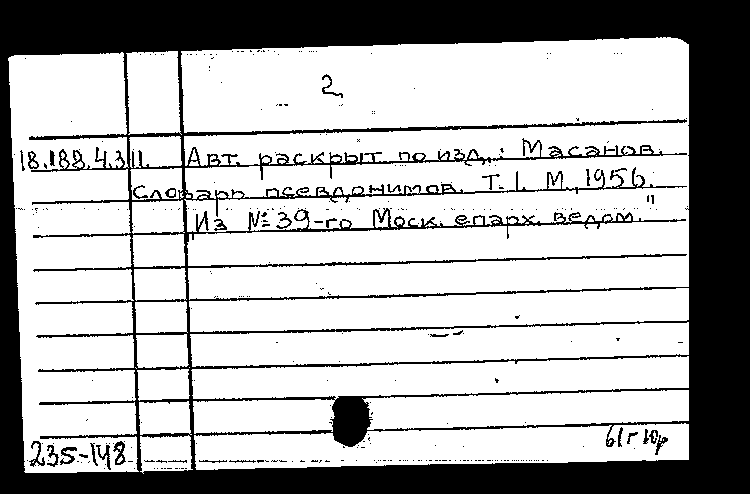 2
18.188.4.311. Авт. раскрыт по изд.: Масанов.
Словарь псевдонимов. Т. I. М., 1956.
„Из № 39-го Моск. епарх. ведом."
235-148
61г